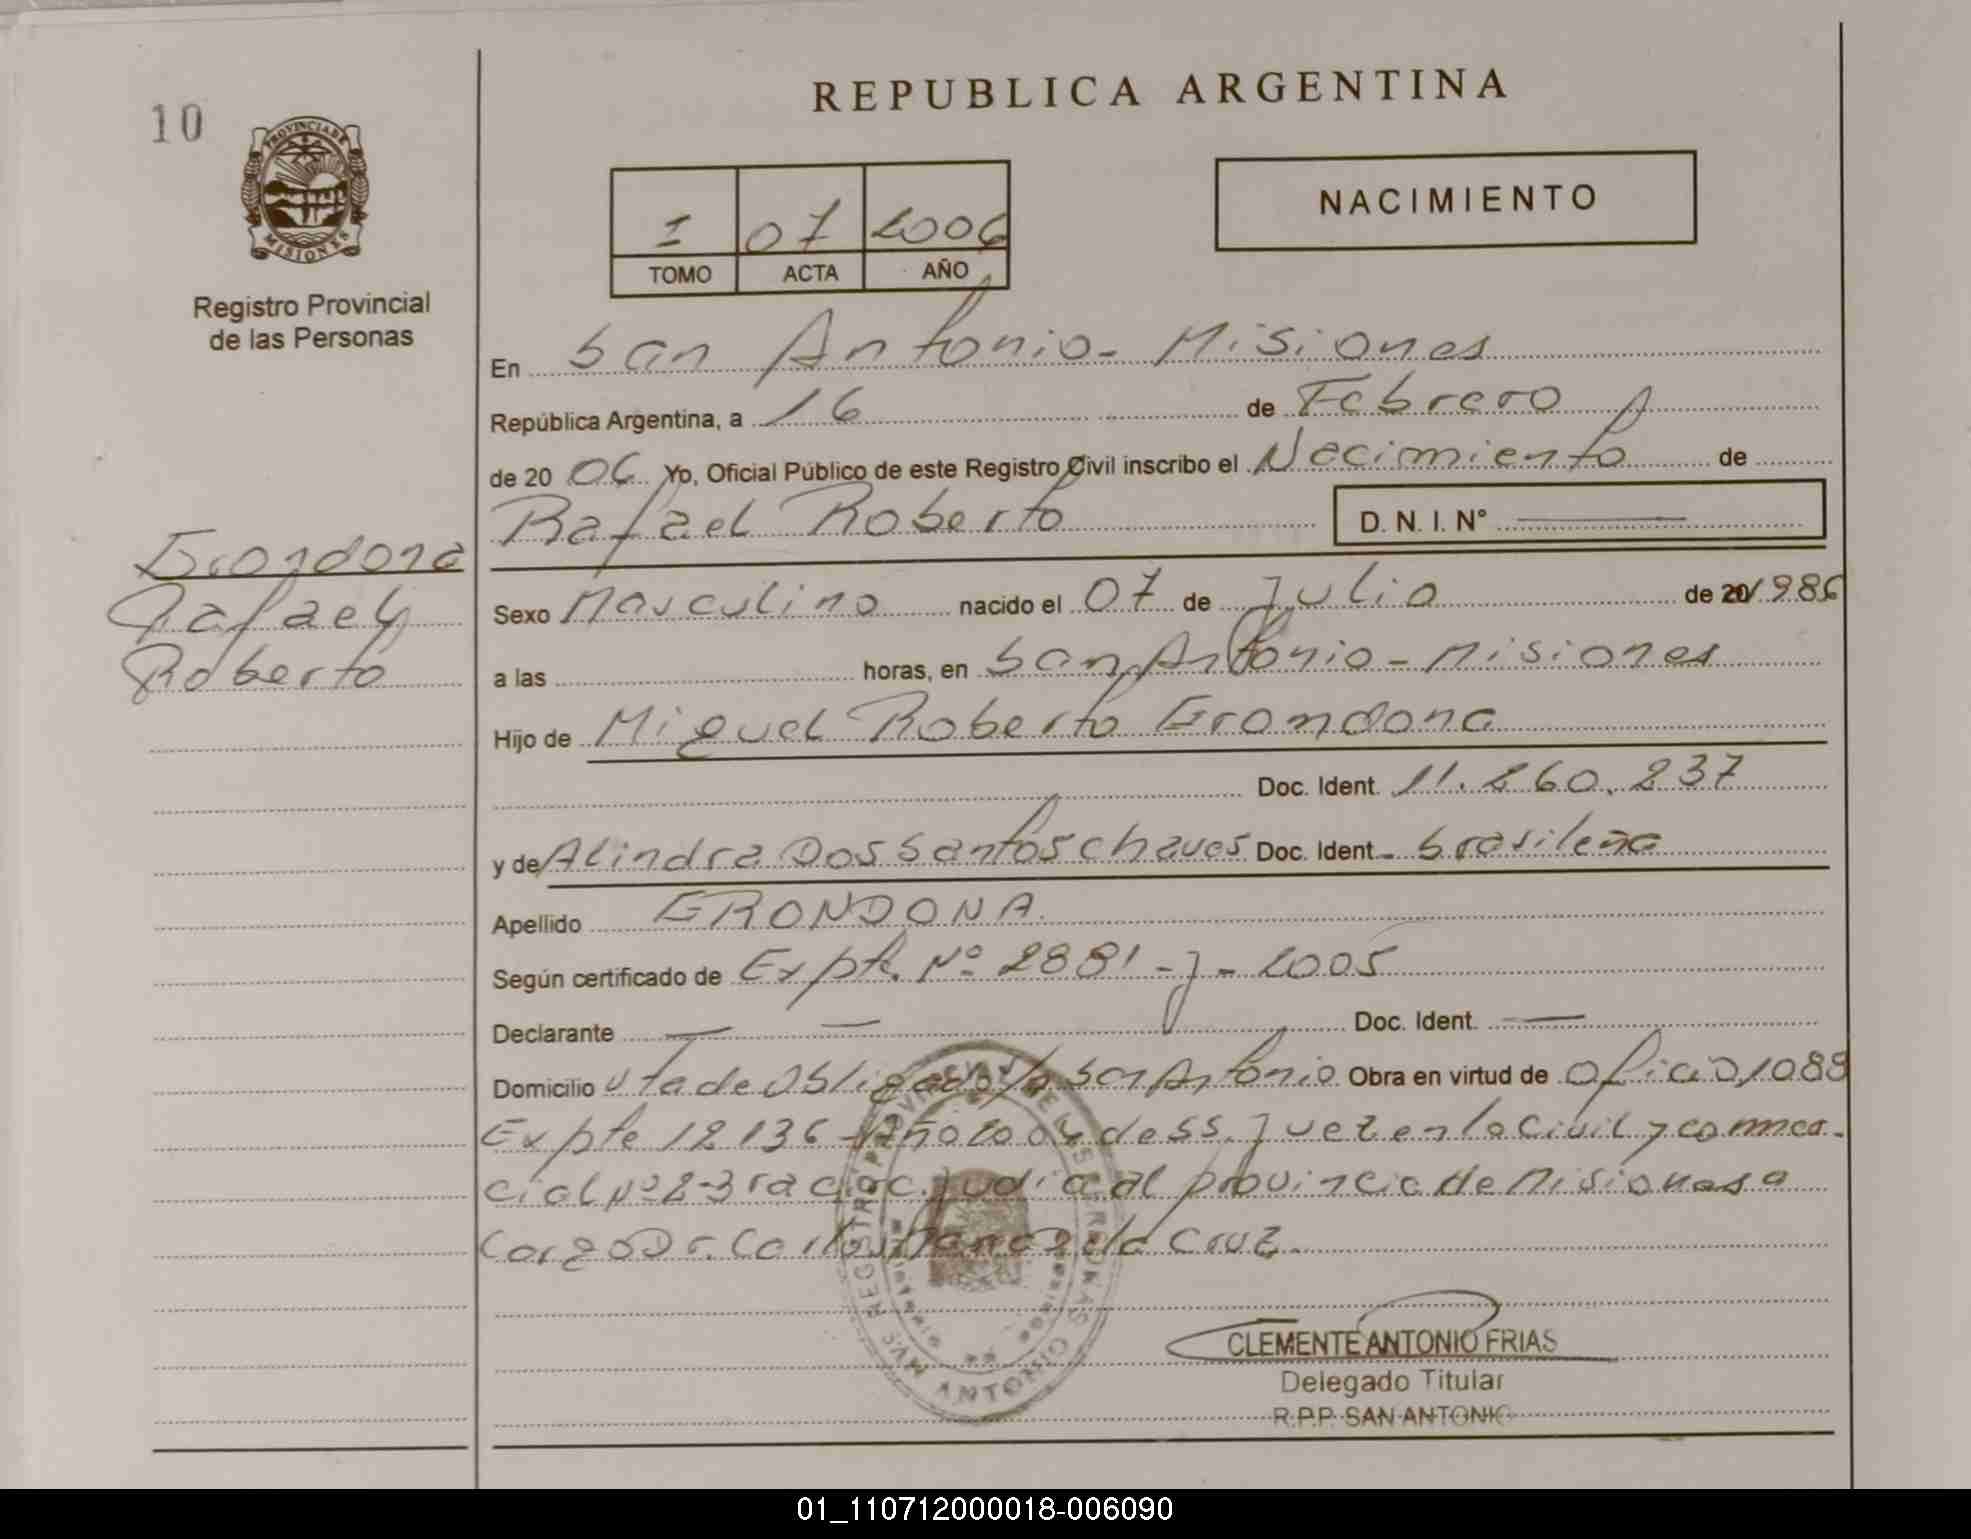 10
PROVINCIA DE
MISIONES
Registro Provincial
de las Personas
REPUBLICA ARGENTINA
I 07 2006
TOMO ACTA AÑO
NACIMIENTO
En San Antonio - Misiones
República Argentina, a 16 de Febrero
de 20 06 Yo, Oficial Público de este Registro Civil inscribo el Nacimiento de
Rafael Roberto D. N. I. N° ——
Grondona
Rafael
Roberto
Sexo Masculino nacido el 07 de Julio de 20 1986
a las horas, en San Antonio - Misiones
Hijo de Miguel Roberto Grondona
Doc. Ident. 11.260.237
y de Alindra Dos Santos Chaves Doc. Ident. - brasileña
Apellido GRONDONA.
Según certificado de Expte. Nº 2881 - J - 2005
Declarante — — Doc. Ident. —
Domicilio San Antonio Obra en virtud de oficio 1088
Expte 12136 - Año 2004 de S.S. Juez en lo Civil y comer-
cial Nº 2 - 3ra circ. Judicial provincia de Misiones a
Cargo Dr. Carlos de la Cruz.
REGISTRO PROVINCIAL DE LAS PERSONAS
SAN ANTONIO
CLEMENTE ANTONIO FRIAS
Delegado Titular
R.P.P. SAN ANTONIO
01_110712000018-006090